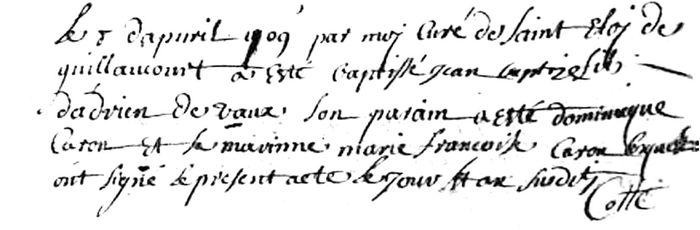 le 5 dapuril 1709 par moj Curé de saint Eloj de
guillaucourt a esté baptissé jean baptiste fils
dadrien de vaux son parain a esté dominique
Caron et sa marinne marie francoise Caron lesquels
ont signé le present acte le jour et an susdit
Cotté